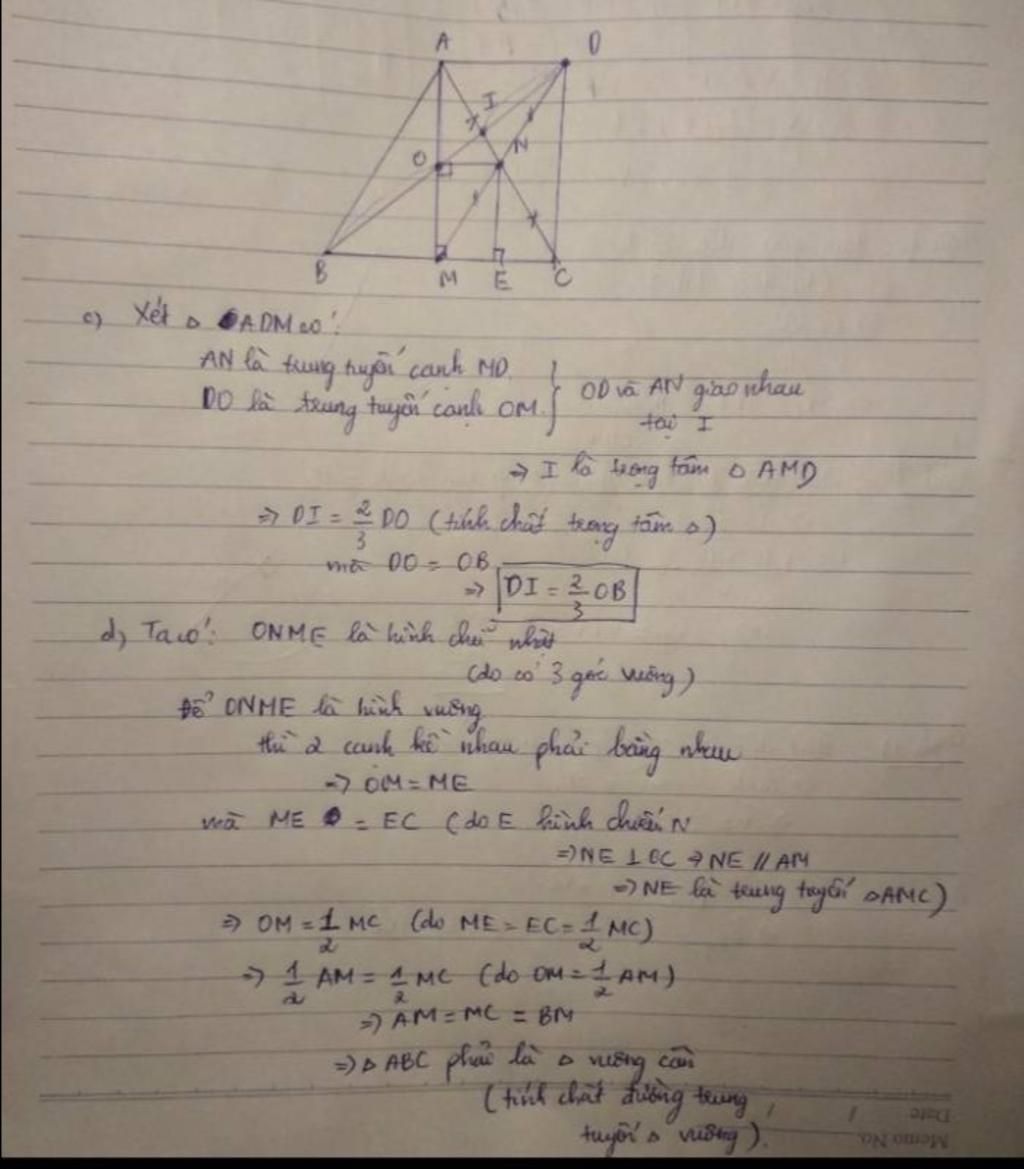 A
D
I
O
N
B
M
E
C
c) Xét Δ ADM có:
AN là trung tuyến cạnh MD
DO là trung tuyến cạnh OM
OD và AN giao nhau
tại I
⇒ I là trọng tâm Δ AMD
⇒ DI = 2/3 DO (tính chất trọng tâm Δ)
mà DO = OB
⇒ DI = 2/3 OB
d) Ta có: ONME là hình chữ nhật
(do có 3 góc vuông)
Để ONME là hình vuông
thì 2 cạnh kề nhau phải bằng nhau
⇒ OM = ME
mà ME = EC (do E hình chiếu N
⇒ NE ⊥ BC ⇒ NE // AM
⇒ NE là trung tuyến ΔAMC)
⇒ OM = 1/2 MC (do ME = EC = 1/2 MC)
⇒ 1/2 AM = 1/2 MC (do OM = 1/2 AM)
⇒ AM = MC = BM
⇒ Δ ABC phải là Δ vuông cân
(tính chất đường trung
tuyến Δ vuông).
Memo No.
Date / /